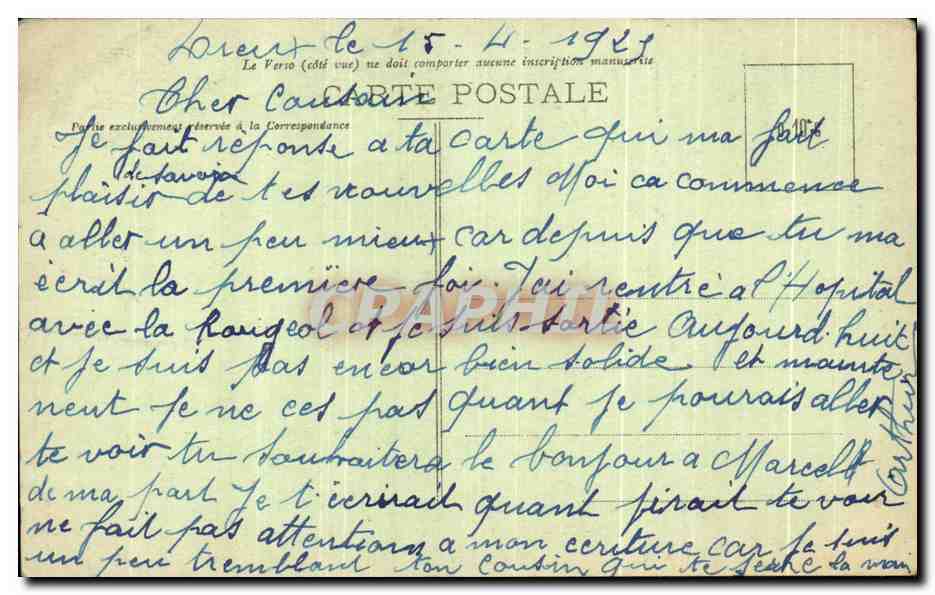 Dreux le 15-4-1921
Le Verso (côté vue) ne doit comporter aucune inscription manuscrite
CARTE POSTALE
Cher Cousin
Partie exclusivement réservée à la Correspondance
Je fait reponse a ta carte qui ma fait
de savoir
plaisir de tes nouvelles Moi ca commence
a aller un peu mieux car depuis que tu ma
écrit la première foi. J'ai rentré a l'Hopital
avec la Rougeol et Je suis sortie Aujourd.huit
et Je suis pas encor bien solide et mainte
nent Je ne ces pas quant Je pourais aller
te voir tu souhaitera le bonjour a Marcel
de ma part Je t'écrirait quant J'irait te voir
ne fait pas attention a mon ecriture car Je suis
un peu tremblant ton cousin qui te serre la main
CRAPHT